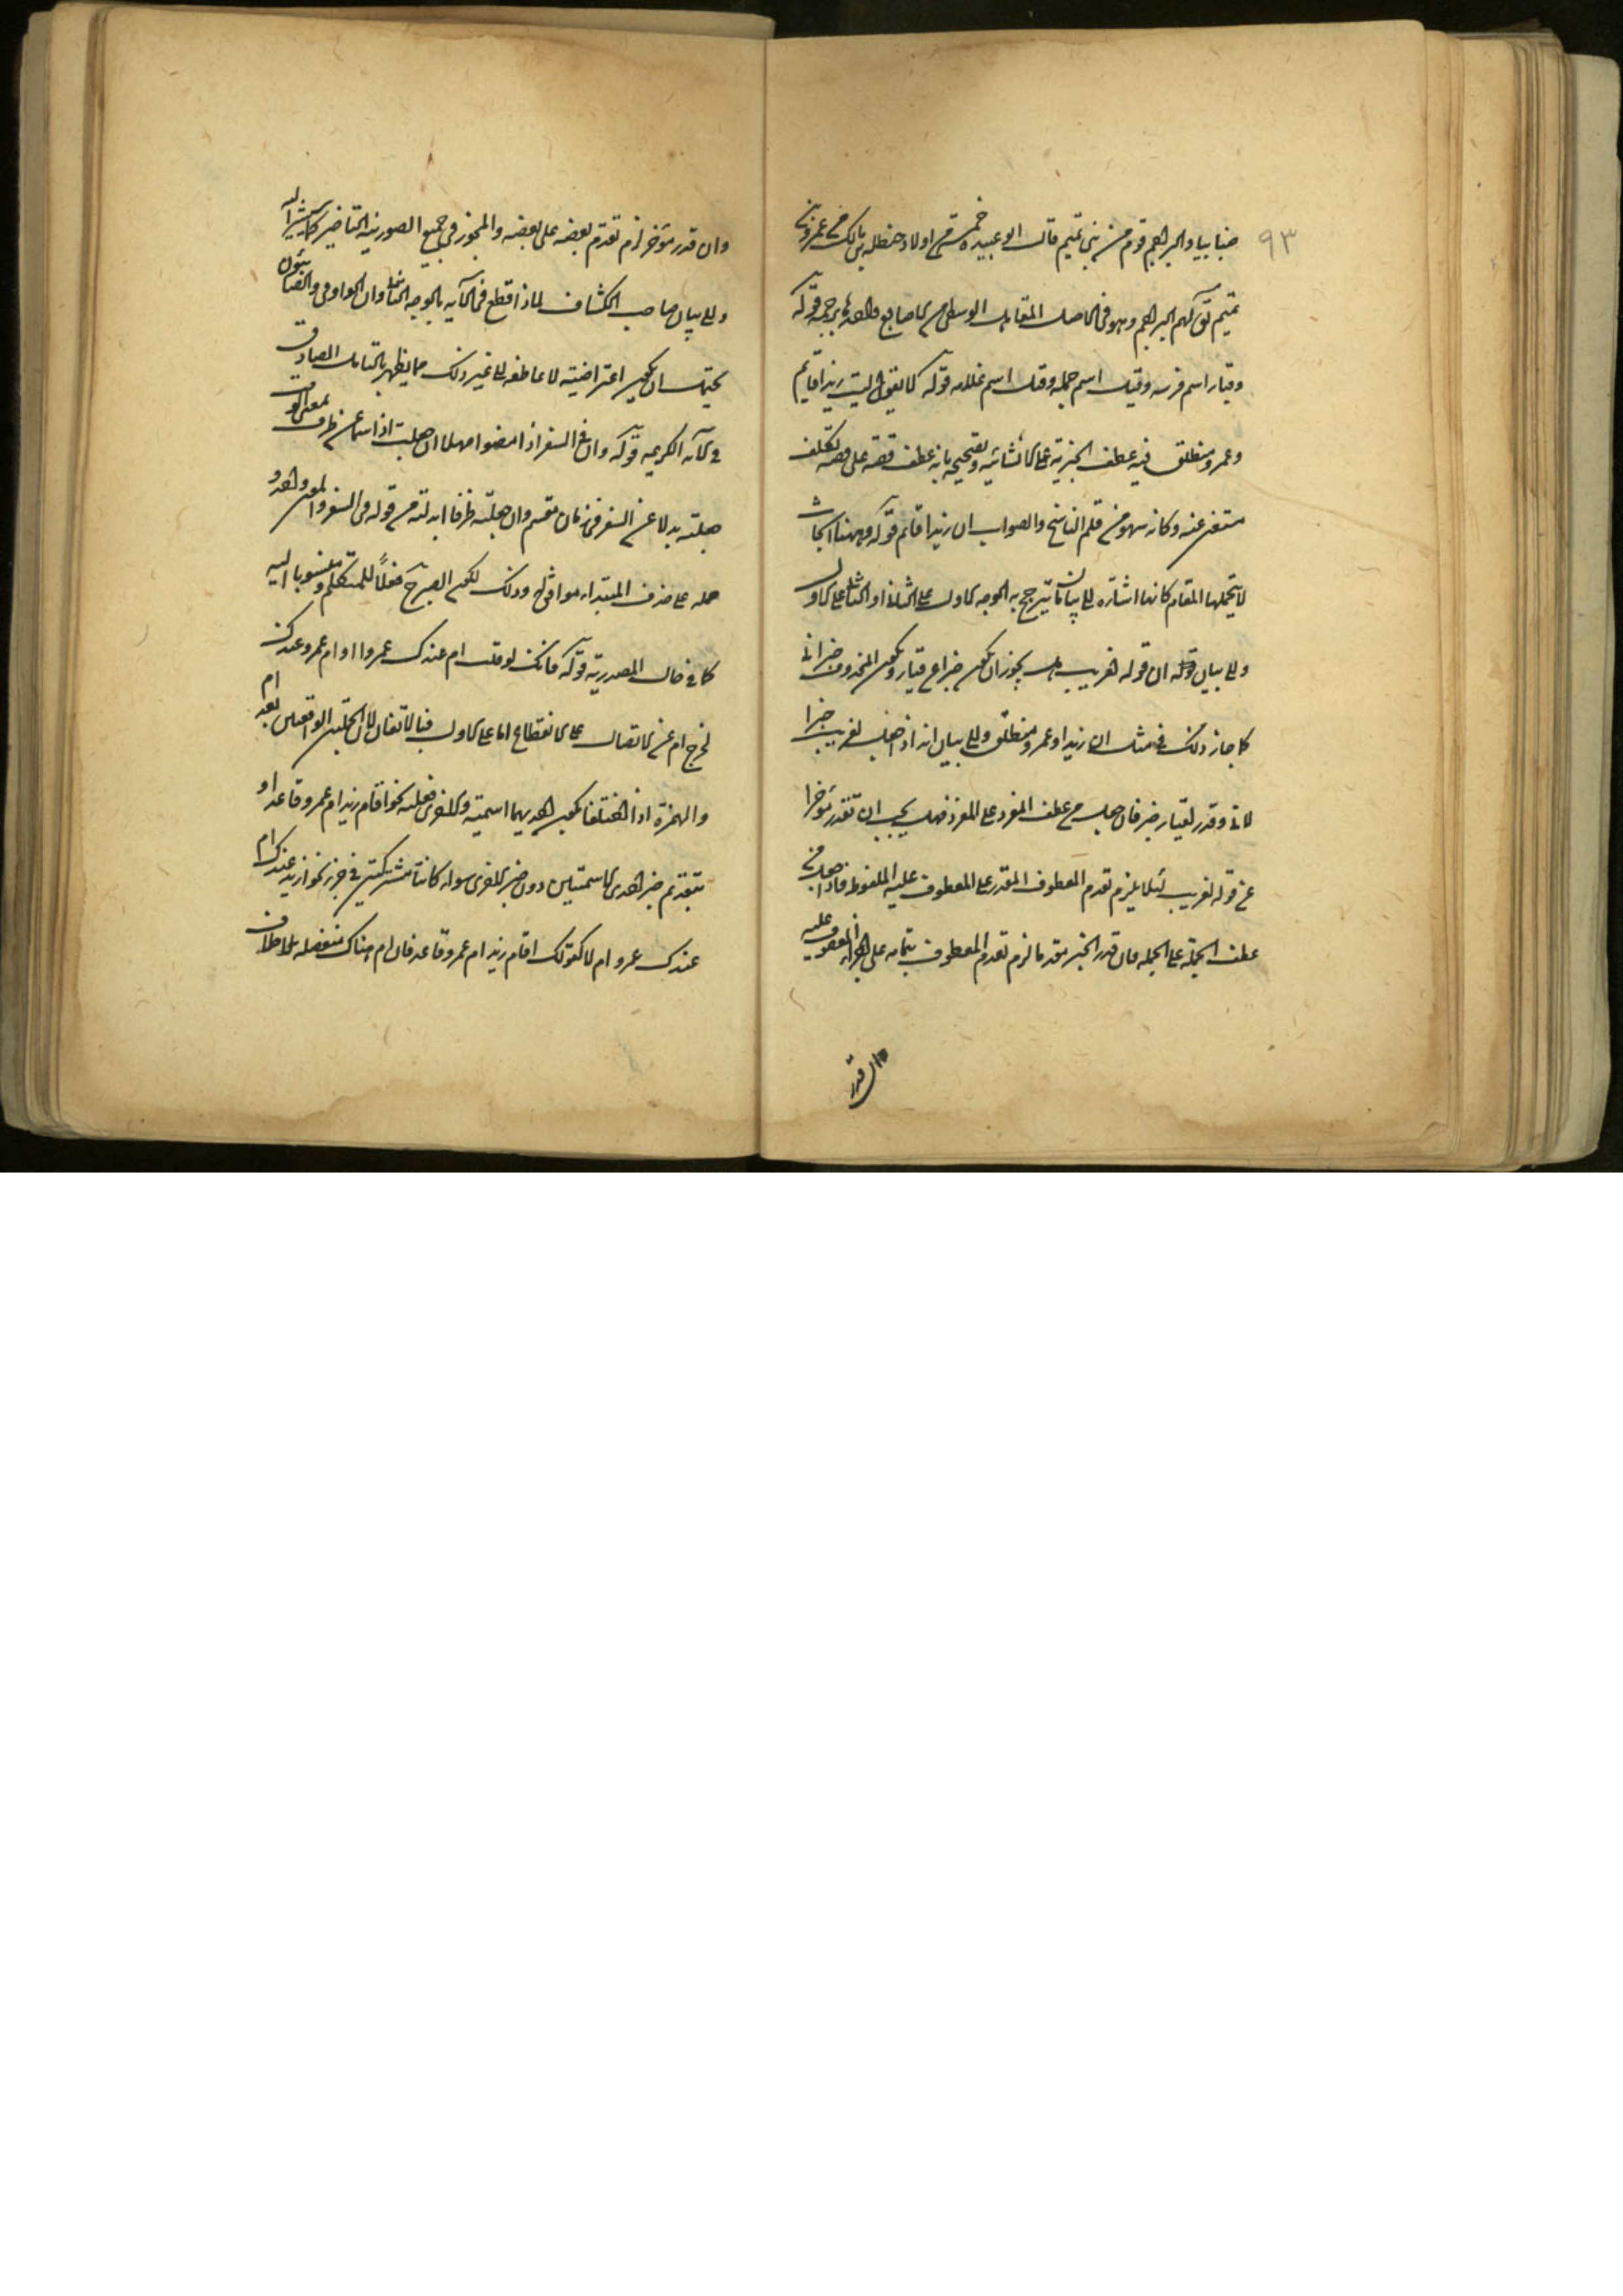 ٩٣
ضابيا والبراجم قوم من بني تميم قال ابو عبيدة خمسة من اولاد حنظلة بن مالك من عمرو بن
تميم يق لهم البراجم وهو في الاصل المفاصل الوسطى من الاصابع والواحدة برجمة قوله
وقيار اسم فرسه وقيل اسم جمله وقيل اسم غلامه قوله كما يقول ليت زيدا قائم
وعمرو منطلق فيه عطف الخبرية على الانشائية وتصحيحه بانه عطف قصة على قصة تكلف
مستغن عنه وكانه سهو من قلم الناسخ والصواب ان زيدا قائم قوله وههنا ابحاث
لا يتحملها المقام كانها اشارة الى بيان ما يترجح به الوجه الاول على الثاني او الثاني على الاول
والى بيان ان قوله لغريب هل يجوز ان يكون خبرا عن قيار ويكون المحذوف خبر اني
كما جاز ذلك في مثل ان زيدا وعمرو منطلق والى بيان انه اذا جعل لغريب خبرا
لاني وقدر لقيار خبر فان جعل من عطف المفرد على المفرد فهل يجب ان تقدر مؤخرا
عن قوله لغريب لئلا يلزم تقدم المعطوف المقدر على المعطوف عليه الملفوظ فاذا جعل من
عطف الجملة على الجملة فان قدر الخبر مقدما لزم تقدم المعطوف بتمامه على اجزاء المعطوف عليه
وان قدر
وان قدر مؤخرا لزم تقدم بعضه على بعضه والمجوز في جميع الصور نية التاخير كما يشير اليه
والى بيان صاحب الكشاف لماذا قطع في الآية بالوجه الثاني وان الواو في والصابئون
يحتمل ان يكون اعتراضية لا عاطفة الى غير ذلك مما يظهر بالتامل الصادق
في الآية الكريمة قوله وان في السفر اذ مضوا مهلا ان جعلت اذ اسما عن ظرف بمعنى الوقت
جعلته بدلا عن السفر في زمان مضيهم وان جعلته ظرفا ابدلته من قوله في السفر والمعنى واحد
حمله على حذف المبتداء موافق وذلك لكون الصبر ج فعلا للمتكلم ومنسوبا اليه
كما في حال المصدرية قوله فانك لو قلت ام عندك عمرو او ام عمرو عندك
لخرج ام عن الاتصال الى الانقطاع اما على الاول فبالاتفاق لان الجملتين الواقعتين بعد ام
والهمزة اذا اختلفتا بكون احديهما اسمية والاخرى فعلية نحو اقام زيد ام عمرو قاعد او
بتقديم خبر احدى الاسميتين دون خبر الاخرى سواء كانتا مشتركتين في جزء نحو ازيد عندك ام
عندك عمرو ام لا كقولك اقام زيد ام عمرو قاعد فان ام هناك منفصلة بلا خلاف